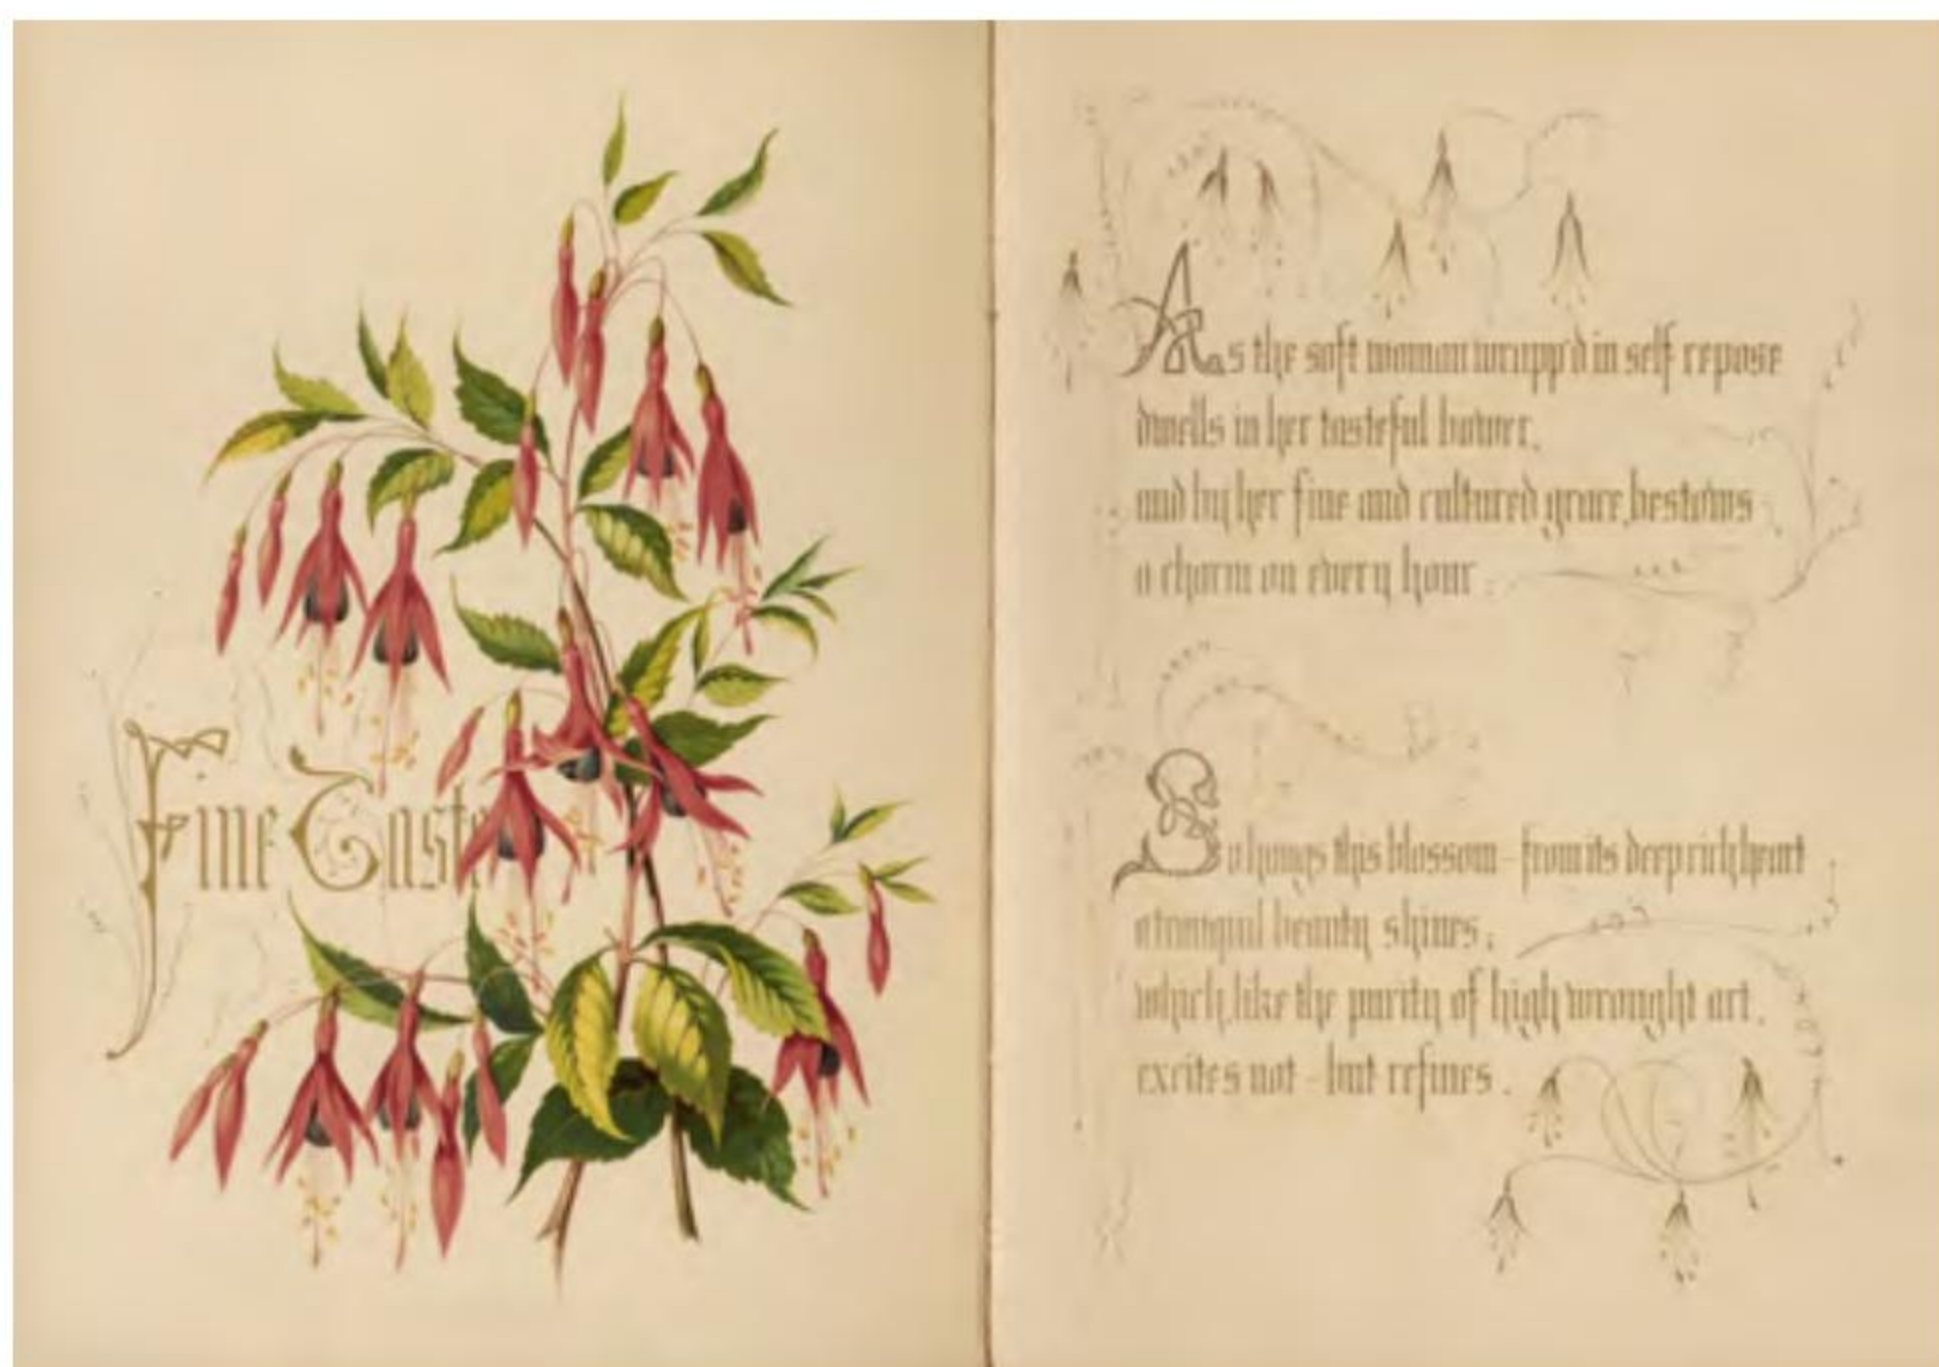 Fine Taste
As the soft woman wrapp'd in self repose
dwells in her tasteful bower,
and by her fine and cultured grace, bestows
a charm on every hour :
So hangs this blossom – from its deep rich heart
a tranquil beauty shines,
which, like the purity of high wrought art,
excites not – but refines .